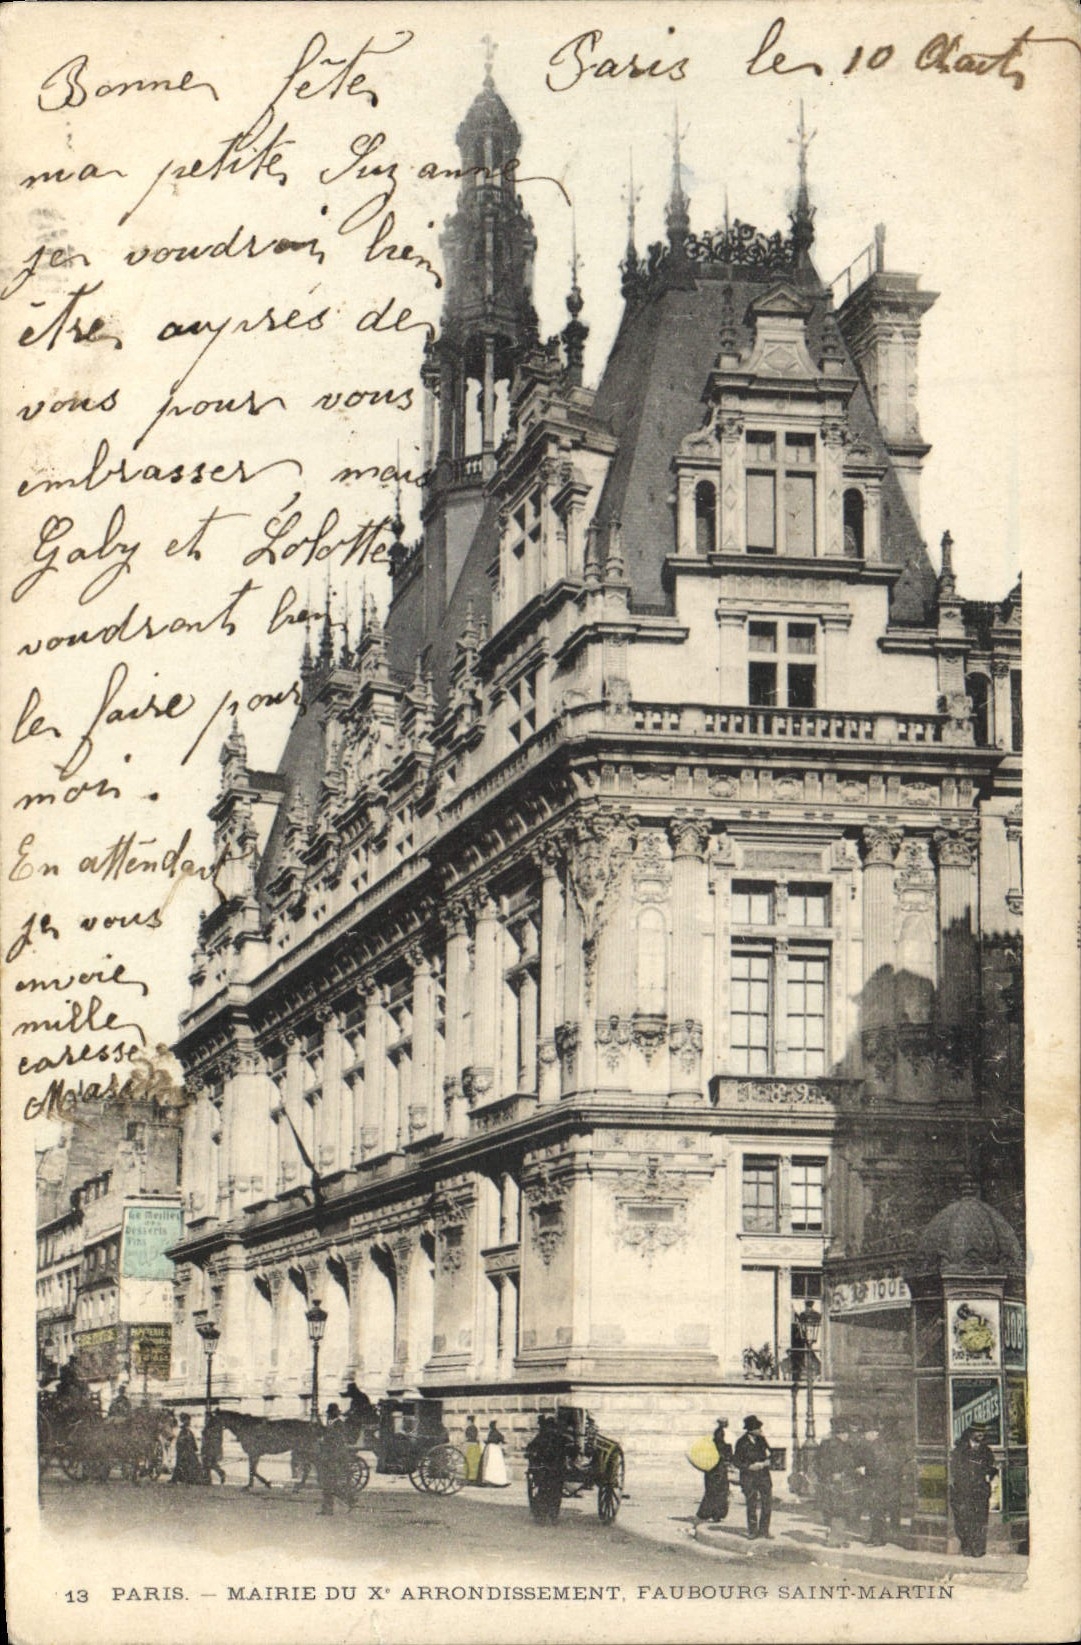 Paris le 10 Août
Bonne fête
ma petite Suzanne
je voudrais bien
être auprès de
vous pour vous
embrasser, mais
Gaby et Lolotte
voudront bien
le faire pour
moi.
En attendant
je vous
envoie
mille
caresse
Le Meilleur
des
Desserts
Vins
JOB
13 PARIS. — MAIRIE DU Xᵉ ARRONDISSEMENT, FAUBOURG SAINT-MARTIN